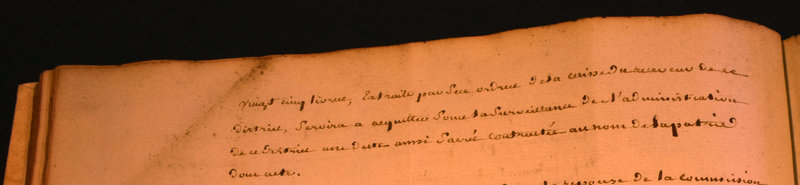 vingt cinq livres, Extraite par Ses ordres de la caisse du receveur de ce
District, Servira a acquitter Sous la Surveillance de l'administration
de ce district une dette aussi Sacrée contractée au nom de la patrie
dont acte.
la reponse de la commission